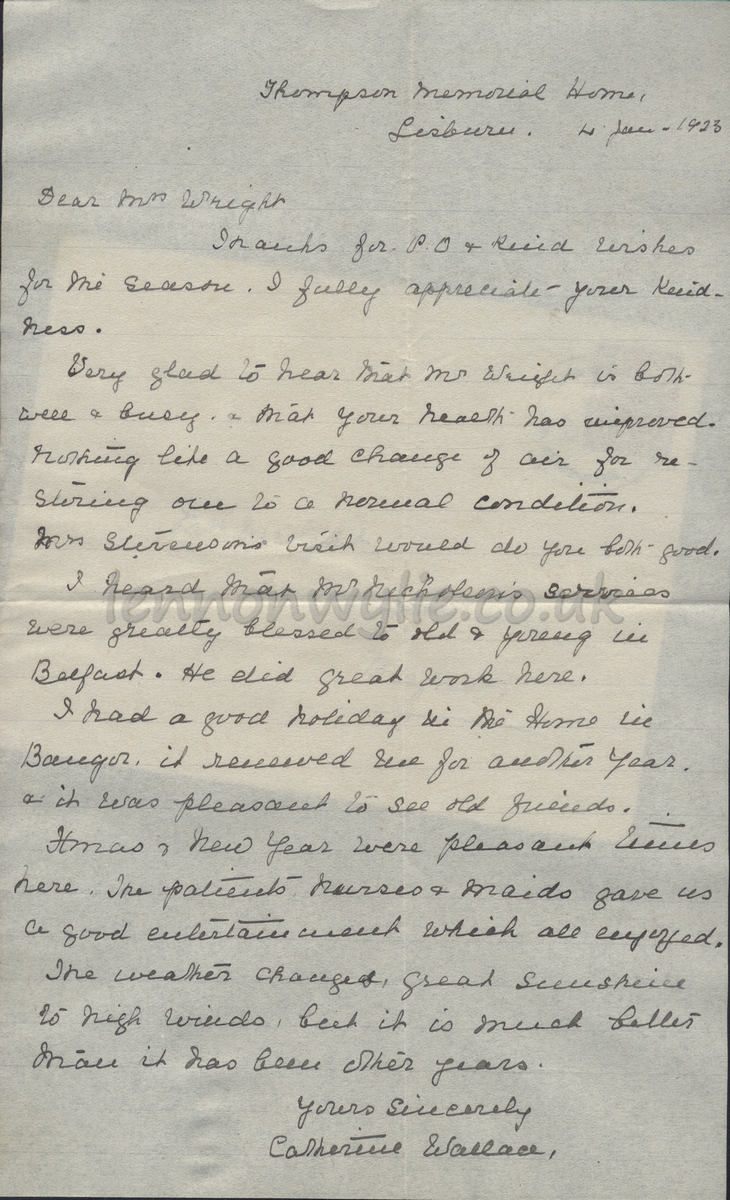 Thompson Memorial Home,
Lisburn. 4 Jan - 1923
Dear Mrs Wright
Thanks for P.O & Kind Wishes
for the Season. I fully appreciate your Kind-
ness.
Very glad to hear that Mr Wright is both
well & busy. & that your health has improved.
Nothing like a good change of air for re-
storing one to a normal condition.
Mrs Stevenson's visit would do you both good.
I heard that Mr Nicholson's services
were greatly blessed to old & young in
Belfast. He did great work here.
lennonwylie.co.uk
I had a good holiday in the Home in
Bangor. it renewed me for another Year.
& it was pleasant to see old friends.
Xmas & New Year were pleasant times
here. The patients, Nurses & Maids gave us
a good entertainment which all enjoyed.
The weather changed, great sunshine
to high winds, but it is much better
than it has been other years.
Yours Sincerely
Catherine Wallace,